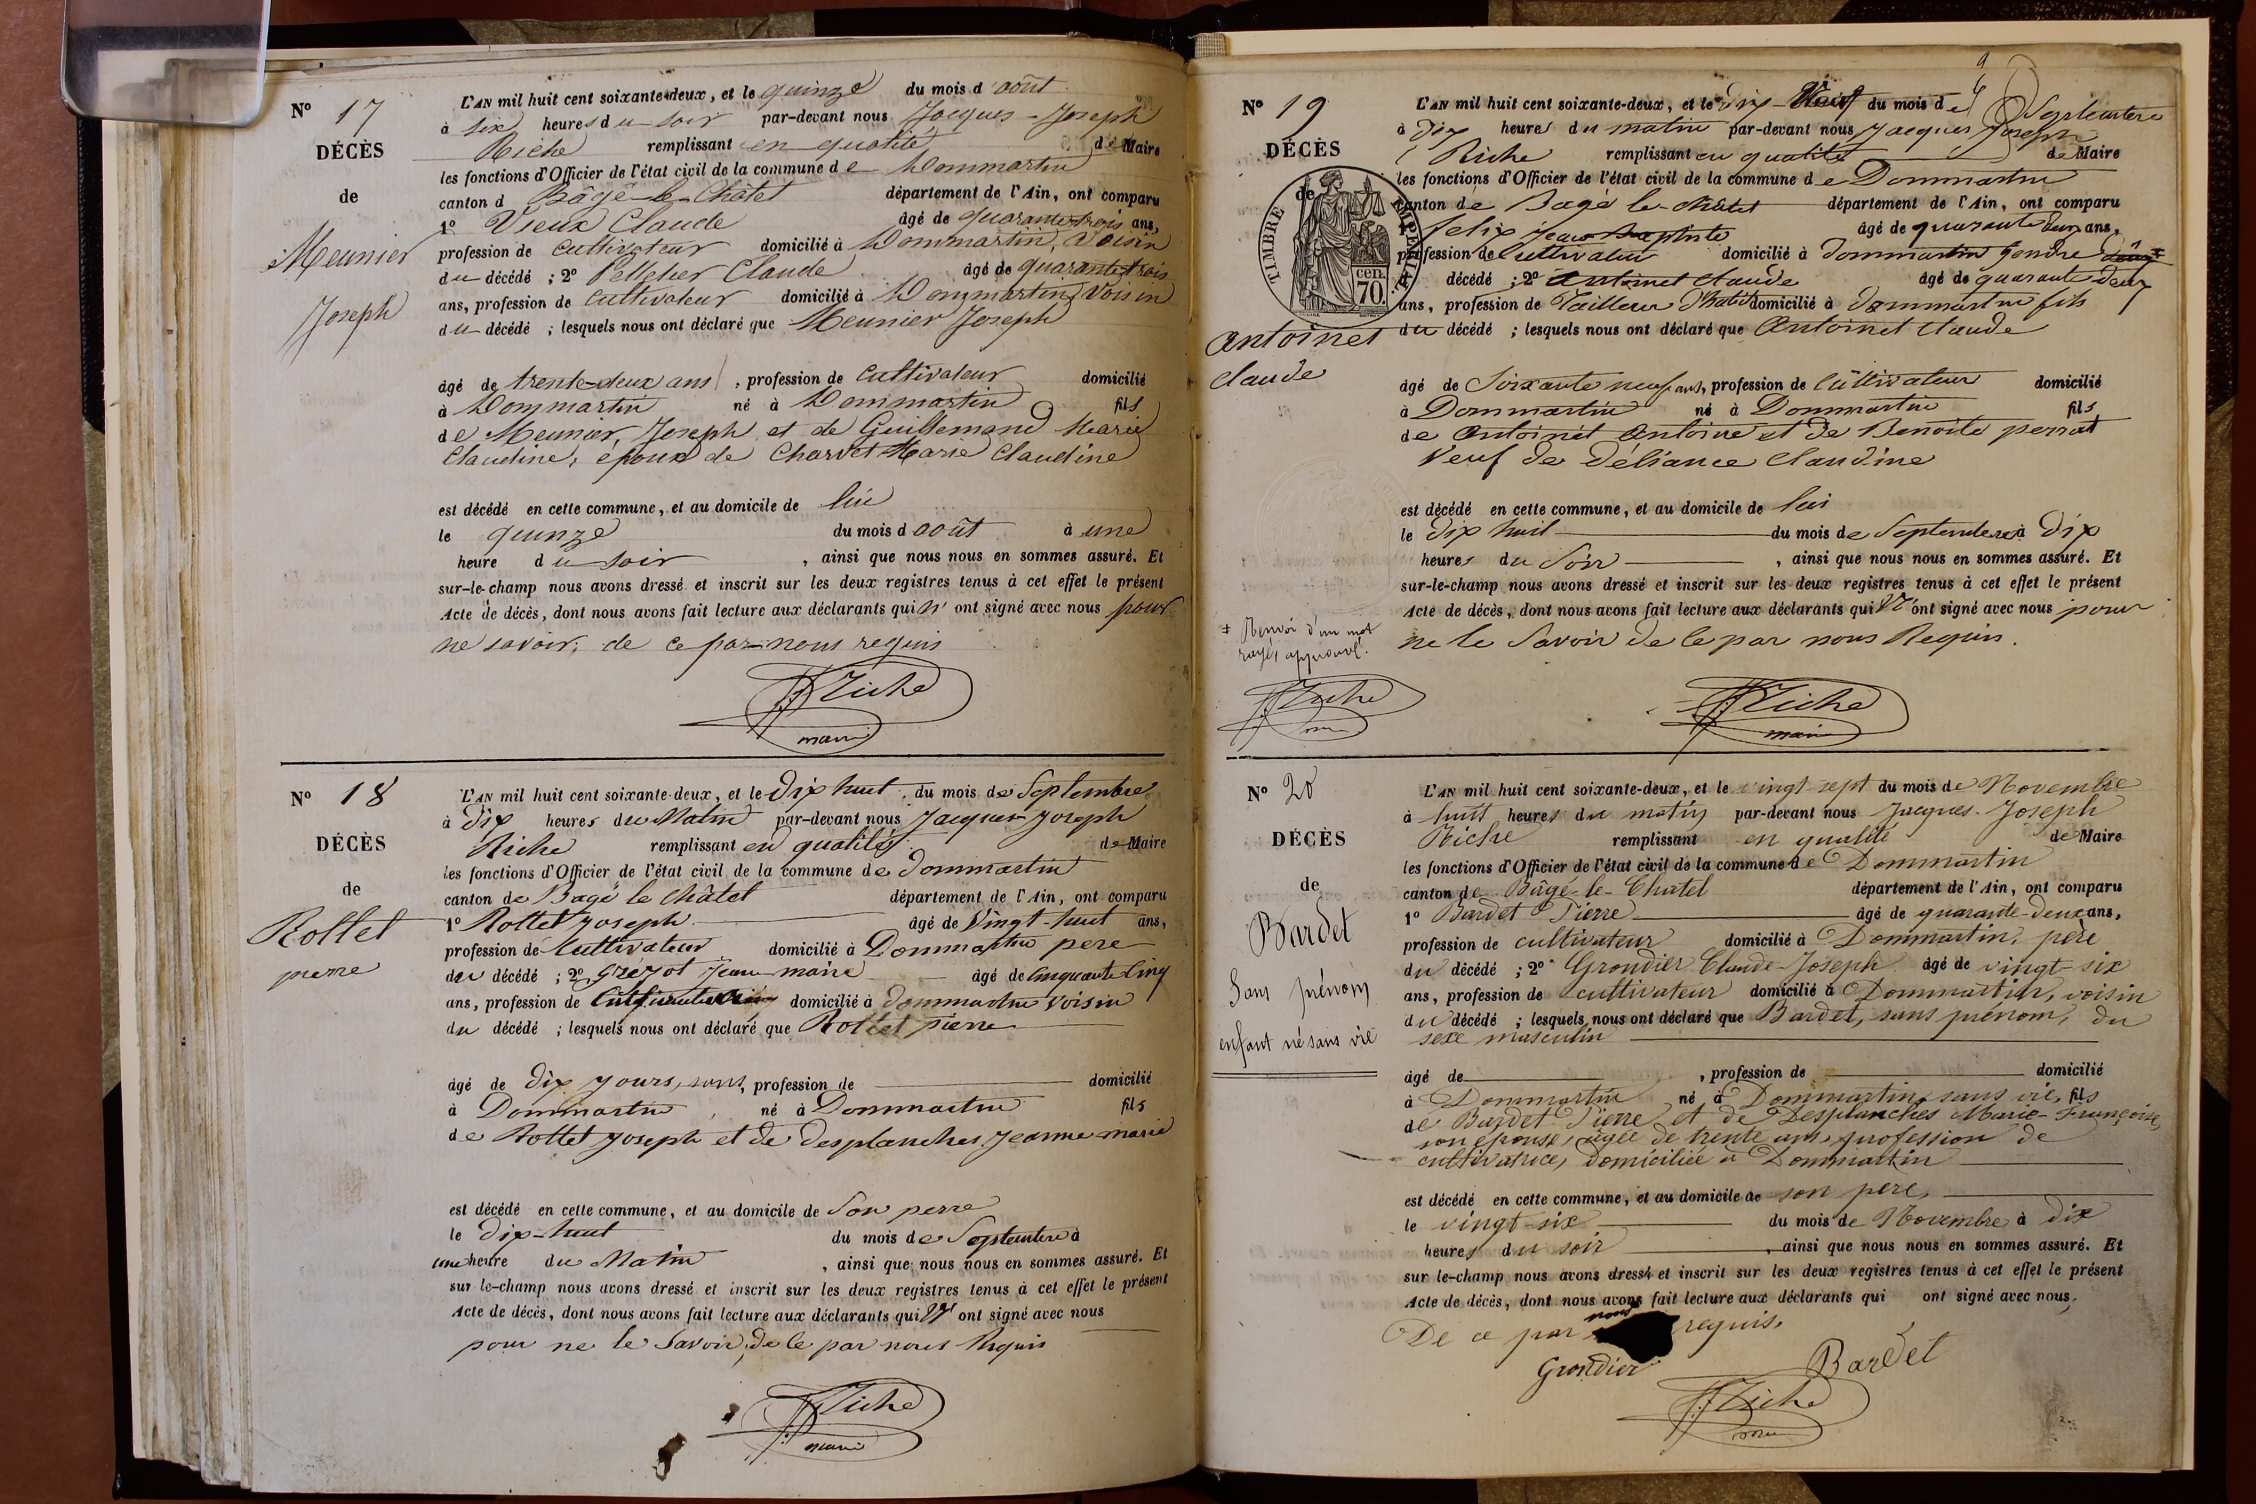 N° 17
DÉCÈS
de
Meunier
Joseph
L'AN mil huit cent soixante-deux, et le quinze du mois d'août
à six heures du soir par-devant nous Jacques-Joseph
Riche remplissant en qualité de Maire
les fonctions d'Officier de l'état civil de la commune de Dommartin
canton d Bâgé-le-Châtel département de l'Ain, ont comparu
1° Vieux Claude âgé de quarante-trois ans,
profession de cultivateur domicilié à Dommartin, voisin
du décédé ; 2° Pelletier Claude âgé de quarante-trois
ans, profession de cultivateur domicilié à Dommartin, voisin
du décédé ; lesquels nous ont déclaré que Meunier Joseph
âgé de trente-deux ans, profession de cultivateur domicilié
à Dommartin né à Dommartin fils
de Meunier, Joseph et de Guillemand Marie
Claudine, époux de Charvet Marie Claudine
est décédé en cette commune, et au domicile de lui
le quinze du mois d'août à une
heure du soir, ainsi que nous nous en sommes assuré. Et
sur-le-champ nous avons dressé et inscrit sur les deux registres tenus à cet effet le présent
Acte de décès, dont nous avons fait lecture aux déclarants qui n'ont signé avec nous pour
ne savoir, de ce par nous requis
JJ Riche
maire
N° 18
DÉCÈS
de
Rollet
pierre
L'AN mil huit cent soixante-deux, et le Dix huit du mois de Septembre
à Dix heures du Matin par-devant nous Jacques Joseph
Riche remplissant en qualités de Maire
les fonctions d'Officier de l'état civil de la commune de Dommartin
canton de Bagé le Châtel département de l'Ain, ont comparu
1° Rollet Joseph âgé de Vingt-huit ans,
profession de Cultivateur domicilié à Dommartin pere
du décédé ; 2° Grezot Jean marie âgé de Cinquante Cinq
ans, profession de Cultivateur domicilié à dommartin voisin
du décédé ; lesquels nous ont déclaré que Rollet pierre
âgé de Dix jours, sans, profession de domicilié
à Dommartin, né à Dommartin fils
de Rollet Joseph et de desplanches Jeanne marie
est décédé en cette commune, et au domicile de Son perre
le Dix-huit du mois de Septembre à
une heure du Matin, ainsi que nous nous en sommes assuré. Et
sur le-champ nous avons dressé et inscrit sur les deux registres tenus à cet effet le présent
Acte de décès, dont nous avons fait lecture aux déclarants qui N' ont signé avec nous
pour ne le Savoir, de Ce par nous Requis
JJ Riche
maire
N° 19
DÉCÈS
de
TIMBRE IMPÉRIAL
70 cen.
antoinet
claude
L'AN mil huit cent soixante-deux, et le dix-Neuf du mois de Septembre
à Dix heures du matin par-devant nous Jacques Joseph
Riche remplissant en qualité de Maire
les fonctions d'Officier de l'état civil de la commune de Dommartin
canton de Bagé le châtel département de l'Ain, ont comparu
felix jean Baptiste âgé de quarante deux ans,
profession de Cultivateur domicilié à dommartin gendre
décédé ; 2° antoinet claude âgé de quarante deux
ans, profession de Tailleur d'habits domicilié à dommartin fils
du décédé ; lesquels nous ont déclaré que antoinet claude
âgé de Soixante neuf ans, profession de Cultivateur domicilié
à Dommartin né à Dommartin fils
de antoinet antoine et de Benoite perrat
Veuf de Déliance Claudine
est décédé en cette commune, et au domicile de lui
le dix huit du mois de Septembre à Dix
heures du Soir, ainsi que nous nous en sommes assuré. Et
sur-le-champ nous avons dressé et inscrit sur les deux registres tenus à cet effet le présent
Acte de décès, dont nous avons fait lecture aux déclarants qui N'ont signé avec nous pour
ne le Savoir de Ce par nous Requis.
Renvoi d'un mot
rayé, approuvé.
JJ Riche
JJ Riche
maire
N° 20
DÉCÈS
de
Bardet
Sans prénom
enfant né sans vie
L'AN mil huit cent soixante-deux, et le vingt-sept du mois de Novembre
à huit heures du matin par-devant nous Jacques-Joseph
Riche remplissant en qualité de Maire
les fonctions d'Officier de l'état civil de la commune de Dommartin
canton de Bâgé-le-Chatel département de l'Ain, ont comparu
1° Bardet Pierre âgé de quarante-deux ans,
profession de cultivateur domicilié à Dommartin, père
du décédé ; 2° Grondier Claude-Joseph âgé de vingt-six
ans, profession de cultivateur domicilié à Dommartin, voisin
du décédé ; lesquels nous ont déclaré que Bardet, sans prénom, du
sexe masculin
âgé de, profession de domicilié
à Dommartin né à Dommartin, sans vie, fils
de Bardet Pierre et de Desplanches Marie-Françoise,
son épouse, âgée de trente ans, profession de
cultivatrice, domiciliée à Dommartin
est décédé en cette commune, et au domicile de son père,
le vingt-six du mois de Novembre à dix
heures du soir, ainsi que nous nous en sommes assuré. Et
sur le-champ nous avons dressé et inscrit sur les deux registres tenus à cet effet le présent
Acte de décès, dont nous avons fait lecture aux déclarants qui ont signé avec nous,
De ce par nous requis.
Grondier
Bardet
JJ Riche
maire